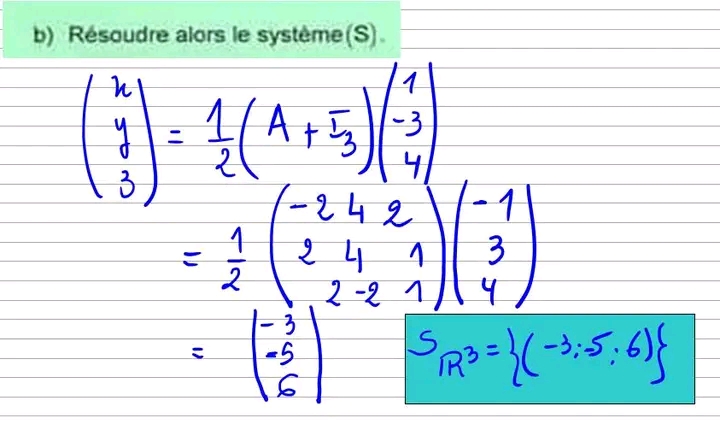 b) Résoudre alors le système (S).
(x y z) = 1/2 (A + I₃) (1 -3 4)
= 1/2 (-2 4 2 2 4 1 2 -2 1) (-1 3 4)
= (-3 -5 6)
S_ℝ³ = {(-3; -5; 6)}